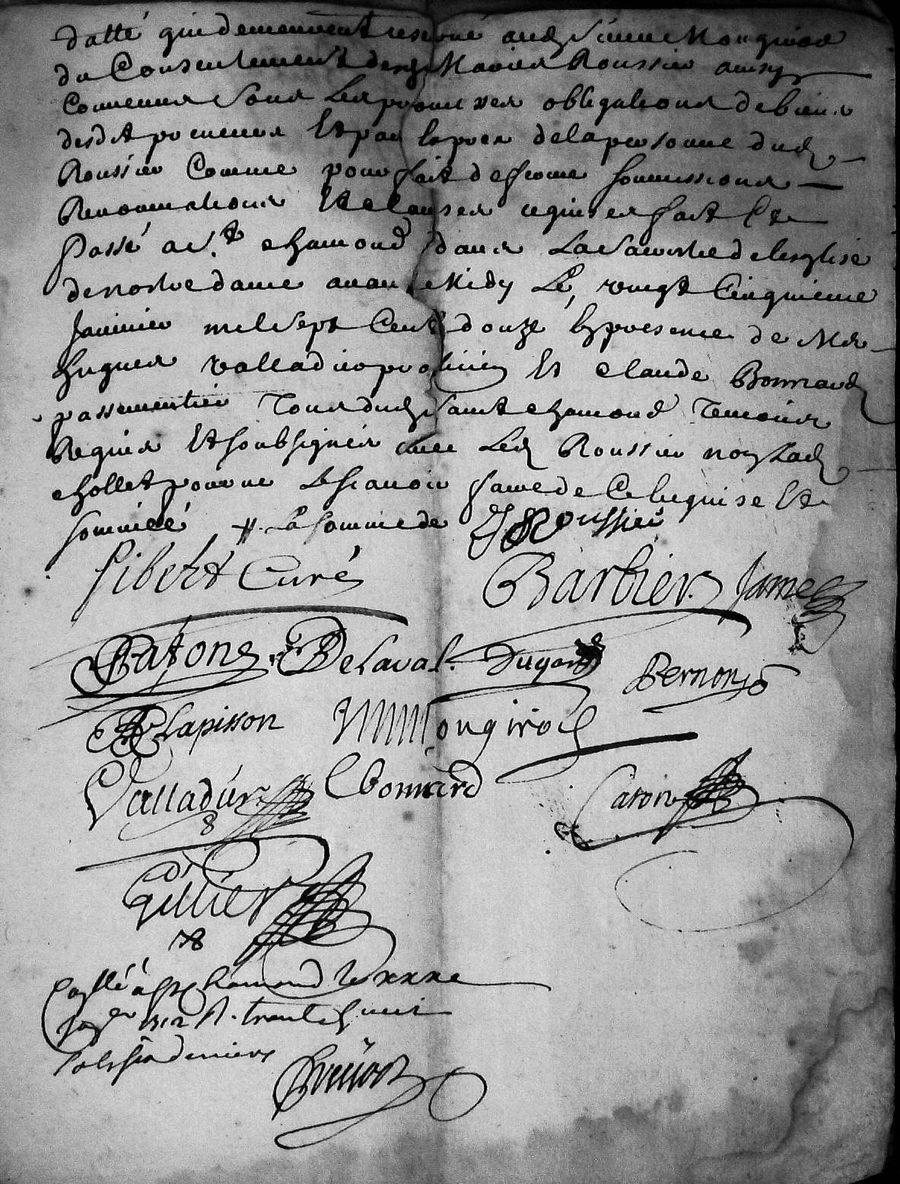 datté qui demeurent reservé audit Sieur Mongirod
du Consentement dudit Mavier Roussier ainsy
Convenu sous les promesses obligations de biens
desdit preneurs Et par expres de la personne dud
Roussier Comme pour fait de ferme soumissions
Renonciations Et clauses requises fait Et
Passé a St chamond dans La Sacristie de lesglise
de nostre dame avant Midy Le vingt Cinquieme
Janvier mil sept Cent douze En presence de Me
hugues valladier praticien Et claude Bonnard
passementier Tous dudit saint chamond Temoins
Requis Et soubsignés avec Led Roussier non Lad
chollet pour ne Le scavoir faire de Ce enquise Et
sommée # La somme de Roussier
Sibert Curé Barbier Jame
Patons Delaval Dugas Bernon
Lapisson Mongirod
Valladier CBonnard Caton
Gillier
Conllé a St Chamond le xxxe
Janer 1712 R. trente huit
sols six deniers